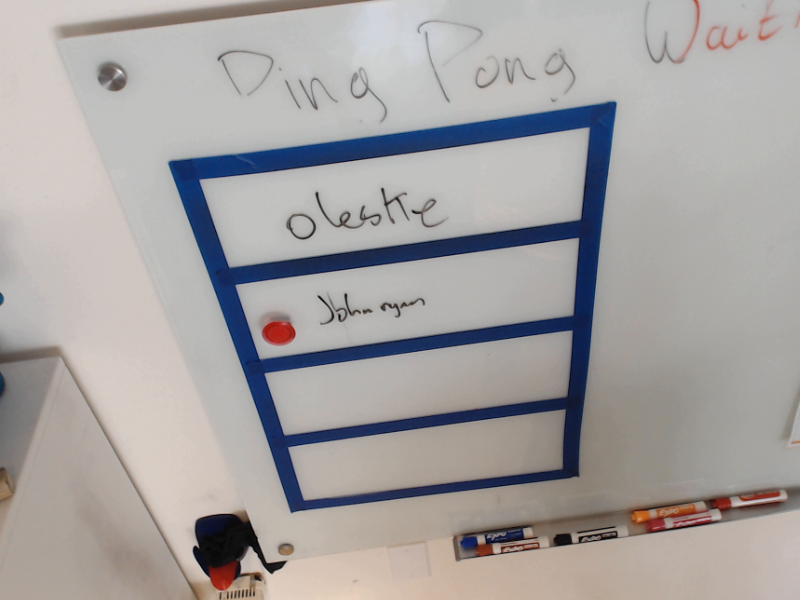 Ping Pong Wait
oleskie
John ryan
EXPO
EXPO
EXPO
EXPO
EXPO